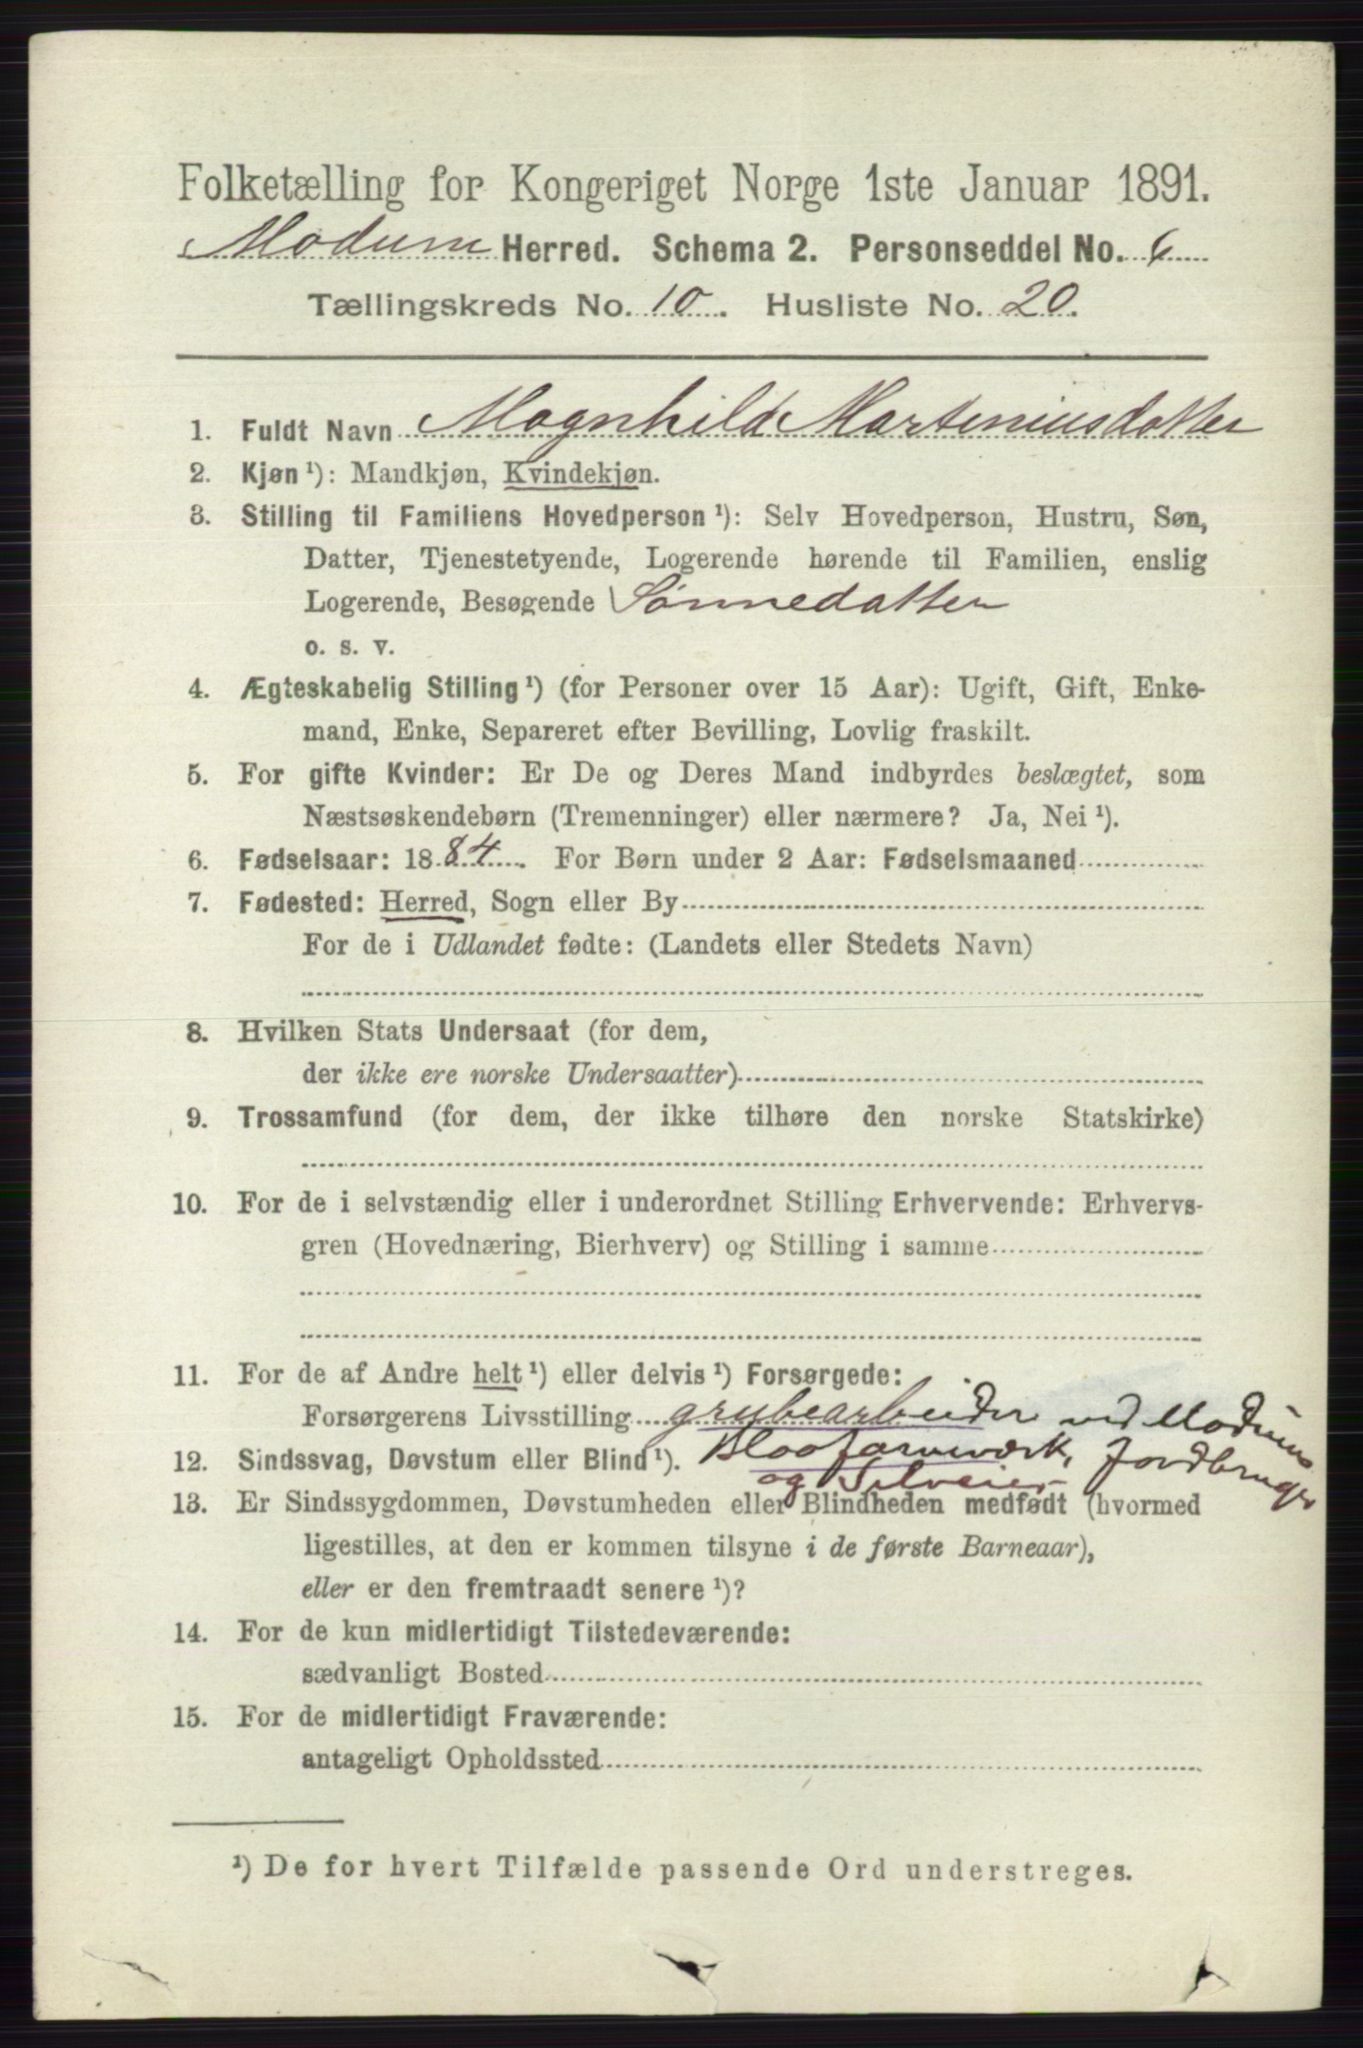 Folketælling for Kongeriget Norge 1ste Januar 1891.
Modum Herred. Schema 2. Personseddel No. 6
Tællingskreds No. 10. Husliste No. 20.
1. Fuldt Navn Magnhild Marteniusdatter
2. Kjøn ¹): Mandkjøn, Kvindekjøn.
3. Stilling til Familiens Hovedperson ¹): Selv Hovedperson, Hustru, Søn,
Datter, Tjenestetyende, Logerende hørende til Familien, enslig
Logerende, Besøgende Sønnedatter
o. s. v.
4. Ægteskabelig Stilling ¹) (for Personer over 15 Aar): Ugift, Gift, Enke-
mand, Enke, Separeret efter Bevilling, Lovlig fraskilt.
5. For gifte Kvinder: Er De og Deres Mand indbyrdes beslægtet, som
Næstsøskendebørn (Tremenninger) eller nærmere? Ja, Nei ¹).
6. Fødselsaar: 1884. For Børn under 2 Aar: Fødselsmaaned
7. Fødested: Herred, Sogn eller By
For de i Udlandet fødte: (Landets eller Stedets Navn)
8. Hvilken Stats Undersaat (for dem,
der ikke ere norske Undersaatter)
9. Trossamfund (for dem, der ikke tilhøre den norske Statskirke)
10. For de i selvstændig eller i underordnet Stilling Erhvervende: Erhvervs-
gren (Hovednæring, Bierhverv) og Stilling i samme
11. For de af Andre helt ¹) eller delvis ¹) Forsørgede:
Forsørgerens Livsstilling grubearbeider ved Modums
12. Sindssvag, Døvstum eller Blind ¹). Blaafarveværk, Jordbruger
og Selveier
13. Er Sindssygdommen, Døvstumheden eller Blindheden medfødt (hvormed
ligestilles, at den er kommen tilsyne i de første Barneaar),
eller er den fremtraadt senere ¹)?
14. For de kun midlertidigt Tilstedeværende:
sædvanligt Bosted
15. For de midlertidigt Fraværende:
antageligt Opholdssted
¹) De for hvert Tilfælde passende Ord understreges.